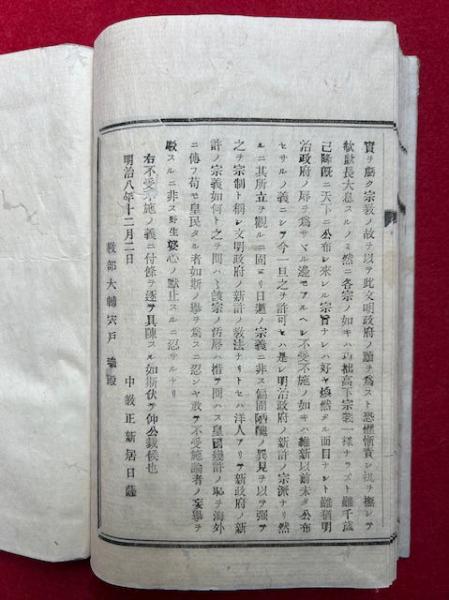 實ヲ虧ク宗教ノ故ヲ以テ此文明政府ノ頭ヲ爲スト恐懼慚實ニ組ヲ撫シテ
歔欷長大息スルノミ然ニ各宗ノ如キハ再拙高下宗義一樣ナラズト雖千歳
已降既ニ天下ニ公布シ來レル宗旨ナレハ好ヤ煥然タル面目ナシト雖獨明
治政府ノ辱ヲ爲サヾル邊モアルヘシ不受不施ノ如キハ維新以前未タ公布
セサルノ義ニシテ今一旦之ヲ許可セハ是レ明治政府ノ新許ノ宗派ナリ然
ルニ其所立ヲ觀ルニ固ヨリ日蓮ノ宗義ニ非ス偏固陋醜ノ異見ヲ以テ强テ
之ヲ宗制ト稱シ文明政府ノ新許ノ教法ナリトセハ洋人アリテ新政府ノ新
許ノ宗義如何ト之ヲ問ハヽ該宗ノ汚辱ハ措テ問ハス皇國幾許ノ恥ヲ海外
ニ傳フ苟モ皇民タル者如斯ノ擧ヲ爲スニ忍ンヤ敢テ不受施論者ノ妄擧ヲ
駁スルニ非ス野生婆心ノ默止スルニ忍サルナリ
右不受不施ノ義ニ付條ヲ逐テ具陳スル如斯伏テ仰公裁候也
明治八年十二月二日
中敎正新居日薩
敎部大輔宍戸璣殿